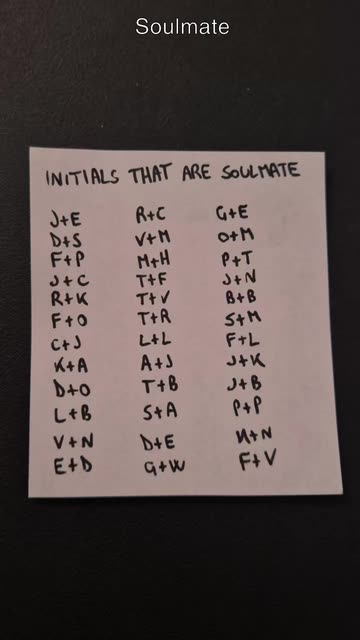 Soulmate
INITIALS THAT ARE SOULMATE
J+E R+C G+E
D+S V+M O+M
F+P M+H P+T
J+C T+F J+N
R+K T+V B+B
F+O T+R S+M
C+J L+L F+L
K+A A+J J+K
D+O T+B J+B
L+B S+A P+P
V+N D+E N+N
E+D G+W F+V